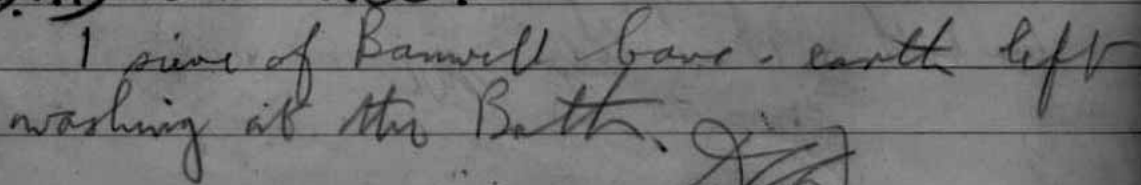 1 sieve of Banwell Cave-earth left
washing at the Bath.